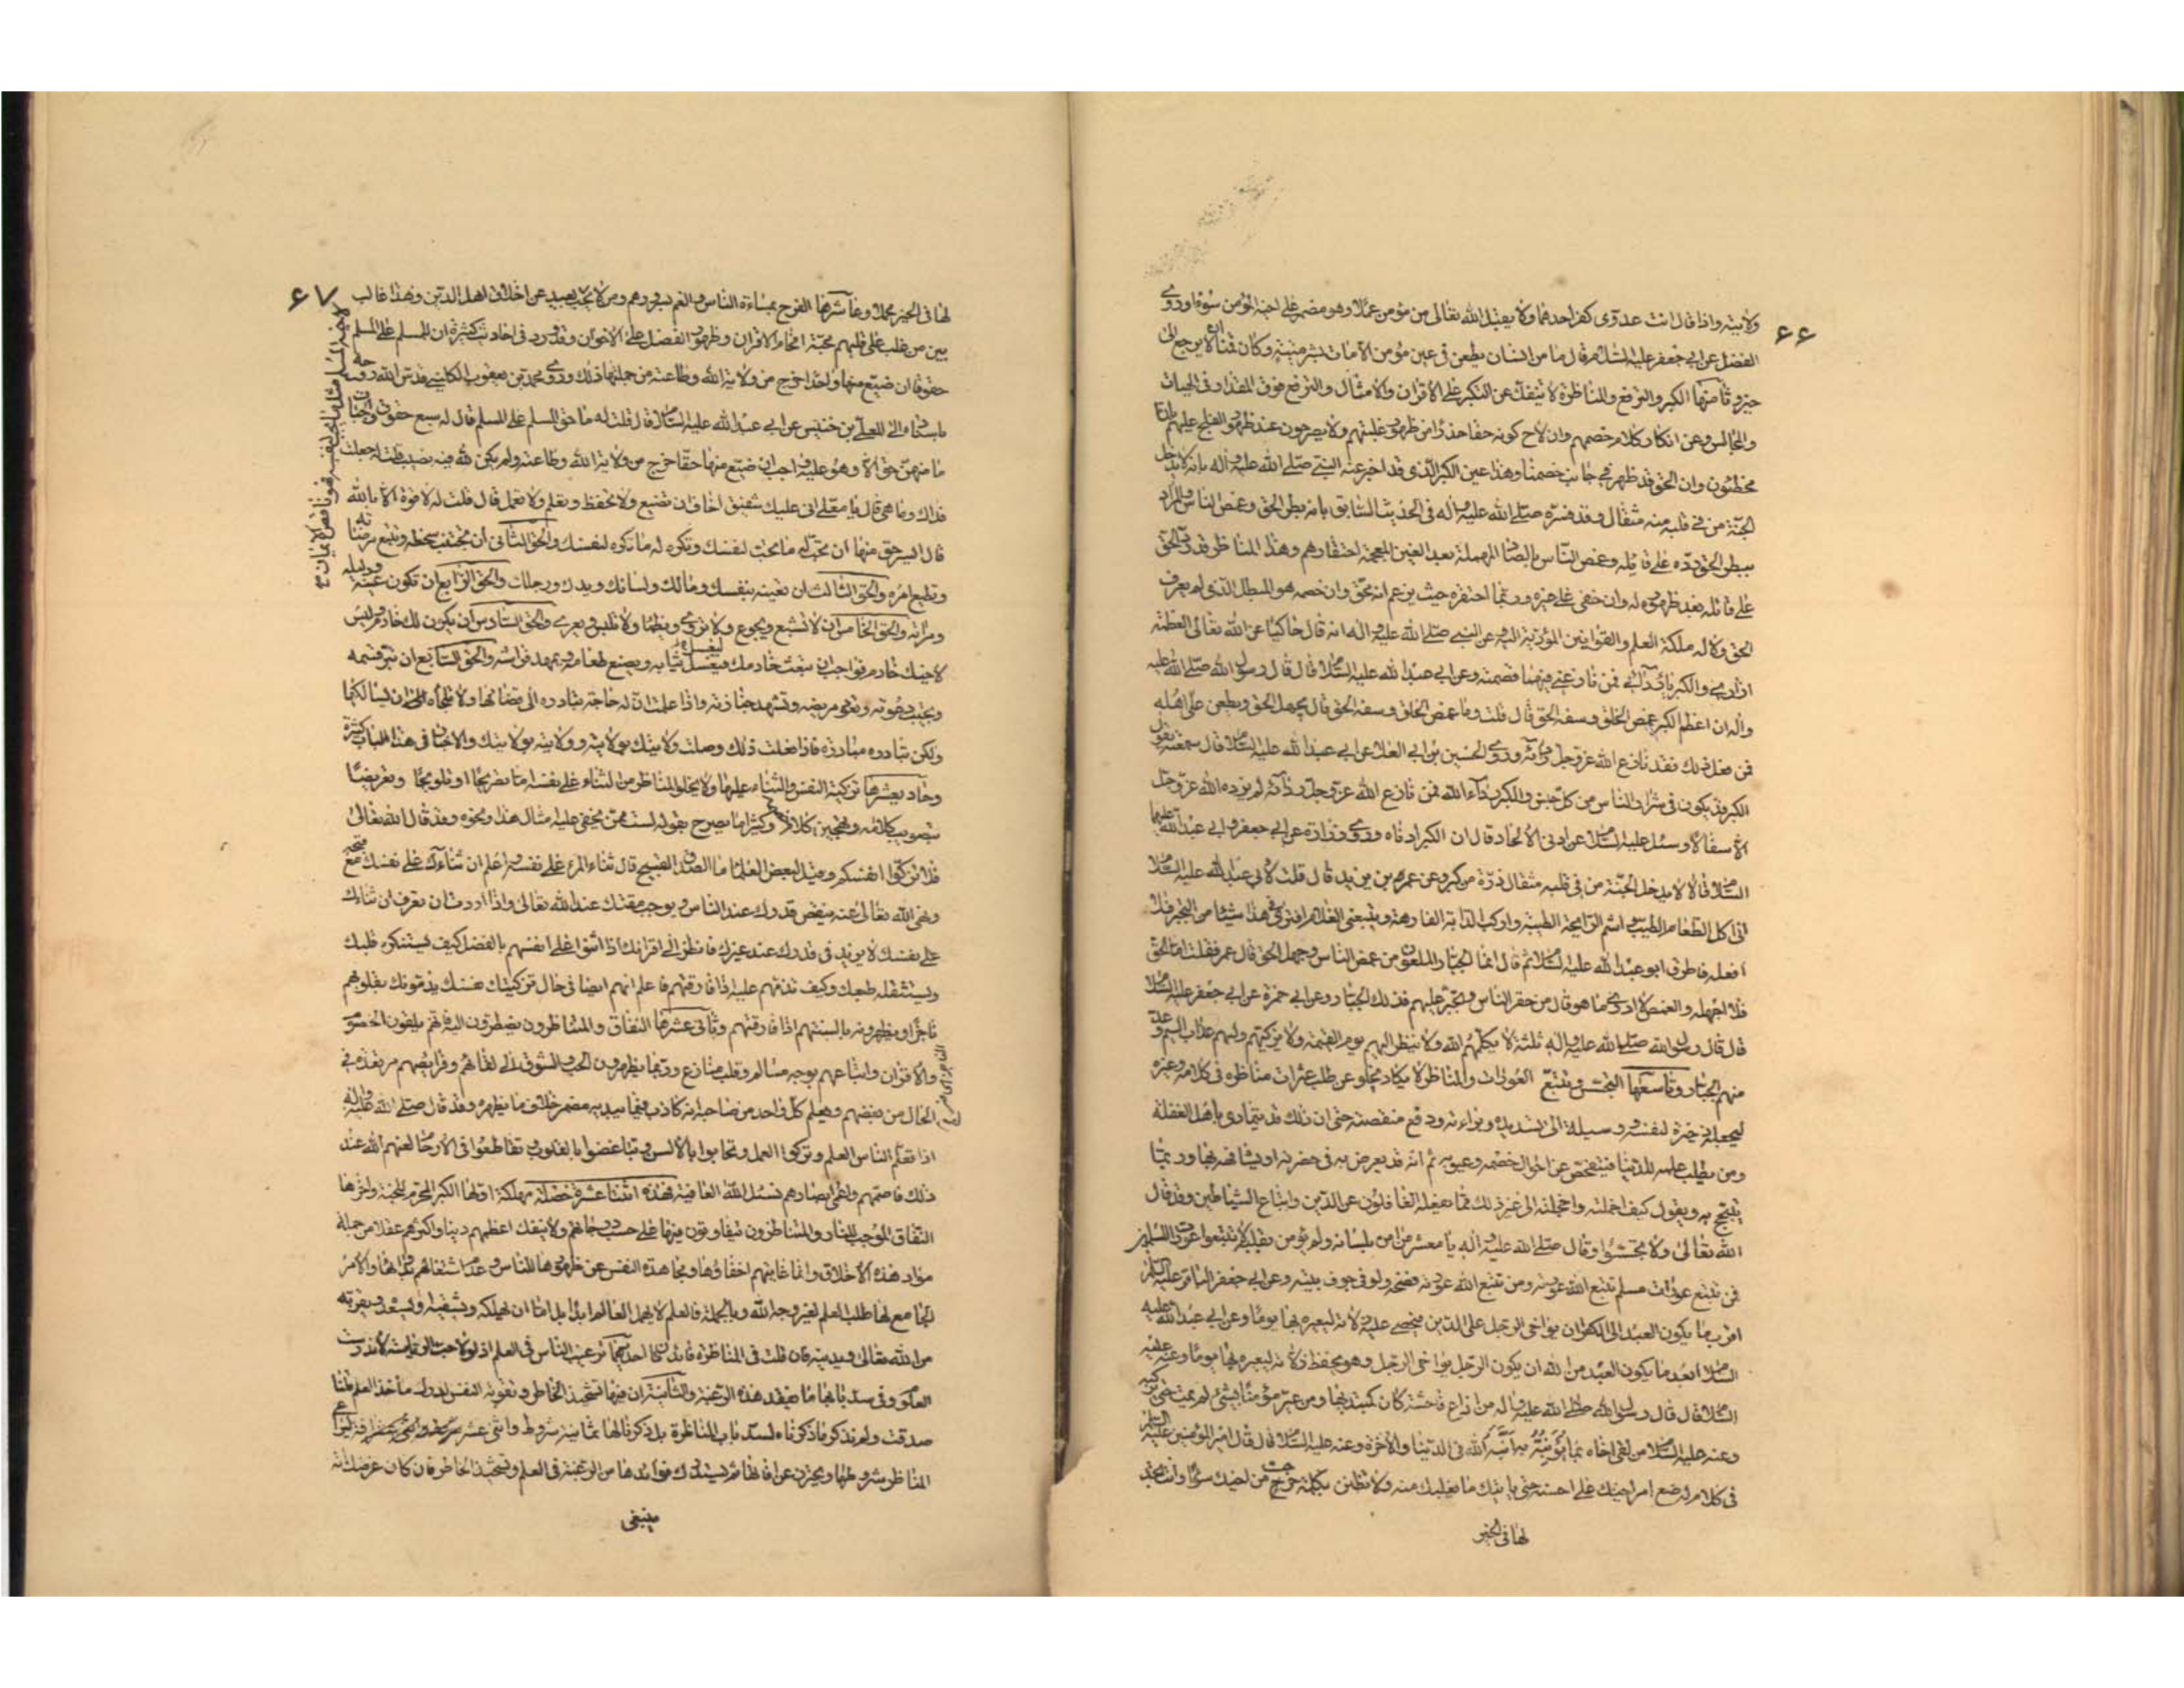 ۶۶
ولايته واذا قال انت عدوى كفر احدهما ولا يقبل الله تعالى من مؤمن عملا وهو مضمر على اخيه المؤمن سوءا وروى
الفضل عن ابى جعفر عليه السلام قال ما من انسان يطعن فى عين مؤمن الا مات بشر ميتة وكان قمنا ان لا يرجع الى
خير وثامنها الكبر والترفع والمناظرة لا تنفك عن التكبر على الاقران والامثال والترفع فوق المقدار فى الهيئات
والمجالس وعن انكار كلام خصمهم وان لاح كونه حقا حذرا من ظهور غلبتهم ولا يصرحون عند ظهور الفلج عليهم بانا
مخطئون وان الحق قد ظهر فى جانب خصمنا وهذا عين الكبر الذى قد اخبر عنه النبى صلى الله عليه وآله بانه لا يدخل
الجنة من فى قلبه منه مثقال وقد فسره صلى الله عليه وآله فى الحديث السابق بانه بطر الحق وغمص الناس والمراد
ببطر الحق رده على قائله وغمص الناس بالصاد المهملة بعد الغين المعجمة احتقارهم وهذا المناظر قد رد الحق
على قائله بعد ظهوره له وان خفى على غيره وربما احتقره حيث يزعم انه محق وان خصمه هو المبطل الذى لم يعرف
الحق ولا له ملكة العلم والقوانين المؤدية اليه وعن النبى صلى الله عليه وآله انه قال حاكيا عن الله تعالى العظمة
ازارى والكبرياء ردائى فمن نازعنى فيهما قصمته وعن ابى عبد الله عليه السلام قال قال رسول الله صلى الله عليه
وآله ان اعظم الكبر غمص الخلق وسفه الحق قال قلت وما غمص الخلق وسفه الحق قال يجهل الحق ويطعن على اهله
فمن فعل ذلك فقد نازع الله عز وجل رداءه وروى الحسين بن ابى العلا عن ابى عبد الله عليه السلام قال سمعته يقول
الكبر قد يكون فى شرار الناس من كل جنس والكبر رداء الله فمن نازع الله عز وجل رداءه لم يزده الله عز وجل
الا سفالا وسئل عليه السلام عن ادنى الالحاد قال ان الكبر ادناه وروى زرارة عن ابى جعفر وابى عبد الله عليهما
السلام قالا لا يدخل الجنة من فى قلبه مثقال ذرة من كبر وعن عمر بن يزيد قال قلت لابى عبد الله عليه السلام
انى اكل الطعام الطيب واشم الرايحة الطيبة واركب الدابة الفارهة ويتبعنى الغلام افترى فى هذا شيئا من التجبر فلا
افعله فاطرق ابو عبد الله عليه السلام ثم قال انما الجبار الملعون من غمص الناس وجهل الحق قال عمر فقلت اما الحق
فلا اجهله والغمص لا ادرى ما هو قال من حقر الناس وتجبر عليهم فذلك الجبار وعن ابى حمزة عن ابى جعفر عليه السلام
قال قال رسول الله صلى الله عليه وآله ثلثة لا يكلمهم الله ولا ينظر اليهم يوم القيمة ولا يزكيهم ولهم عذاب اليم وعد
منهم الجبار وتاسعها التجسس وتتبع العورات والمناظر لا يكاد يخلو عن طلب عثرات مناظره فى كلامه وغيره
ليجعله ذخيرة لنفسه ووسيلة الى تسديده وبراءته ودفع منقصته حتى ان ذلك قد يتمادى باهل الغفلة
ومن يطلب علمه للدنيا فيتفحص عن احوال خصمه وعيوبه ثم انه قد يعرض به فى حضرته او يشافهه بها وربما
يتبجح به ويقول كيف اخملته واخجلته الى غير ذلك مما يفعله الغافلون عن الدين واتباع الشياطين وقد قال
الله تعالى ولا تجسسوا وقال صلى الله عليه وآله يا معشر من امن بلسانه ولم يؤمن بقلبه لا تتبعوا عورات المسلمين
فمن تتبع عورات مسلم تتبع الله عورته ومن تتبع الله عورته فضحه ولو فى جوف بيته وعن ابى جعفر الباقر عليه السلام
اقرب ما يكون العبد الى الكفر ان يواخى الرجل على الدين فيحصى عليه زلاته ليعيره بها يوما وعن ابى عبد الله عليه
السلام ابعد ما يكون العبد من الله ان يكون الرجل يواخى الرجل وهو يحفظ زلاته ليعيره بها يوما وعنه عليه
السلام قال قال رسول الله صلى الله عليه وآله من اذاع فاحشة كان كمبتديها ومن عير مؤمنا بشئ لم يمت حتى يركبه
وعنه عليه السلام من لقى اخاه بما يؤنبه انبه الله فى الدنيا والآخرة وعنه عليه السلام قال قال امير المؤمنين عليه السلام
فى كلام له ضع امر اخيك على احسنه حتى ياتيك ما يغلبك منه ولا تظنن بكلمة خرجت من اخيك سوءا وانت تجد
لها فى الخير
۶۷
لها فى الخير محملا وعاشرها الفرح بمساءة الناس والغم بسرورهم ومن لا يحب لاخيه المسلم مثل ما يحب لنفسه فهو ناقص الايمان بعيد عن اخلاق اهل الدين وهذا غالب
بين من غلب على قلبهم محبة افحام الاقران وظهور الفضل على الاخوان وقد ورد فى احاديث كثيرة ان للمسلم على المسلم
حقوقا ان ضيع منها واحدا خرج من ولاية الله وطاعته من جملتها ذلك وروى محمد بن يعقوب الكلينى قدس الله روحه
باسناده الى المعلى بن خنيس عن ابى عبد الله عليه السلام قال قلت له ما حق المسلم على المسلم قال له سبع حقوق واجبات
ما منهن حق الا وهو عليه واجب ان ضيع منها حقا خرج من ولاية الله وطاعته ولم يكن لله فيه نصيب قلت له جعلت
فداك وما هى قال يا معلى انى عليك شفيق اخاف ان تضيع ولا تحفظ وتعلم ولا تعمل قال قلت له لا قوة الا بالله
قال ايسر حق منها ان تحب له ما تحب لنفسك وتكره له ما تكره لنفسك والحق الثانى ان تجتنب سخطه وتتبع مرضاته
وتطيع امره والحق الثالث ان تعينه بنفسك ومالك ولسانك ويدك ورجلك والحق الرابع ان تكون عينه ودليله
ومرآته والحق الخامس ان لا تشبع ويجوع ولا تروى ويظمأ ولا تلبس ويعرى والحق السادس ان يكون لك خادم وليس
لاخيك خادم فواجب ان تبعث خادمك فيغسل ثيابه ويصنع طعامه ويمهد فراشه والحق السابع ان تبر قسمه
وتجيب دعوته وتعود مريضه وتشهد جنازته واذا علمت ان له حاجة تبادره الى قضائها ولا تلجأه الى ان يسالكها
ولكن تبادره مبادرة فاذا فعلت ذلك وصلت ولايتك بولايته وولايته بولايتك والاخبار فى هذا الباب كثيرة
وحاديعشرها تزكية النفس والثناء عليها ولا يخلو المناظر من الثناء على نفسه اما تصريحا او تلويحا وتعريضا
بتصويب كلامه وتهجين كلام خصمه وكثيرا ما يصرح بقوله لست ممن يخفى عليه امثال هذا ونحوه وقد قال الله تعالى
فلا تزكوا انفسكم وقيل لبعض العلما ما الصدق القبيح قال ثناء المرء على نفسه واعلم ان ثناءك على نفسك مع قبحه
ونهى الله تعالى عنه ينقص قدرك عند الناس ويوجب مقتك عند الله تعالى واذا اردت ان تعرف ان ثناءك
على نفسك لا يزيد فى قدرك عند غيرك فانظر الى اقرانك اذا اثنوا على انفسهم بالفضل كيف يستنكره قلبك
ويستثقله طبعك وكيف تذمهم عليه اذا فارقتهم فاعلم انهم ايضا فى حال تزكيتك نفسك يذمونك بقلوبهم
ناجزا ويظهرونه بالسنتهم اذا فارقتهم وثانى عشرها النفاق والمتناظرون يضطرون اليه فانهم يلقون الخصوم
والاقران واتباعهم بوجه مسالم وقلب منازع وربما يظهرون الحب والشوق الى لقائهم وفرائصهم مرتعدة فى
الحال من بغضهم ويعلم كل واحد من صاحبه انه كاذب فيما يبديه مضمر خلاف ما يظهره وقد قال صلى الله عليه وآله
اذا تعلم الناس العلم وتركوا العمل وتحابوا بالالسن وتباغضوا بالقلوب وتقاطعوا فى الارحام لعنهم الله عند
ذلك فاصمهم واعمى ابصارهم نسئل الله العافية فهذه اثنتا عشرة خصلة مهلكة اولها الكبر المحرم للجنة واخرها
النفاق الموجب للنار والمتناظرون يتفاوتون فيها على حسب درجاتهم ولا ينفك اعظمهم دينا واكثرهم عقلا من جملة
مواد هذه الاخلاق وانما غايتهم اخفاؤها ومجاهدة النفس عن ظهورها للناس وعدم اشتغالهم بدوائها والامر
الجامع لها طلب العلم لغير وجه الله وبالجملة فالعلم لا يهمل العالم ابدا بل اما ان يهلكه ويشقيه او يسعده ويقربه
من الله تعالى ويدنيه فان قلت فى المناظرة فائدتان احديهما ترغيب الناس فى العلم اذ لولا حب الرياسة لاندرست
العلوم وفى سد بابها ما يفتر هذه الرغبة والثانية ان فيها تشحيذ الخاطر وتقوية النفس لدرك مأخذ العلم قلنا
صدقت ولم نذكر ما ذكرناه لسد باب المناظرة بل ذكرنا لها ثمانية شروط واثنى عشر آفة ليراعى
المناظر شروطها ويحترز عن آفاتها ثم يستدرك فوائدها من الرغبة فى العلم وتشحيذ الخاطر فان كان غرضك انه
ينبغى